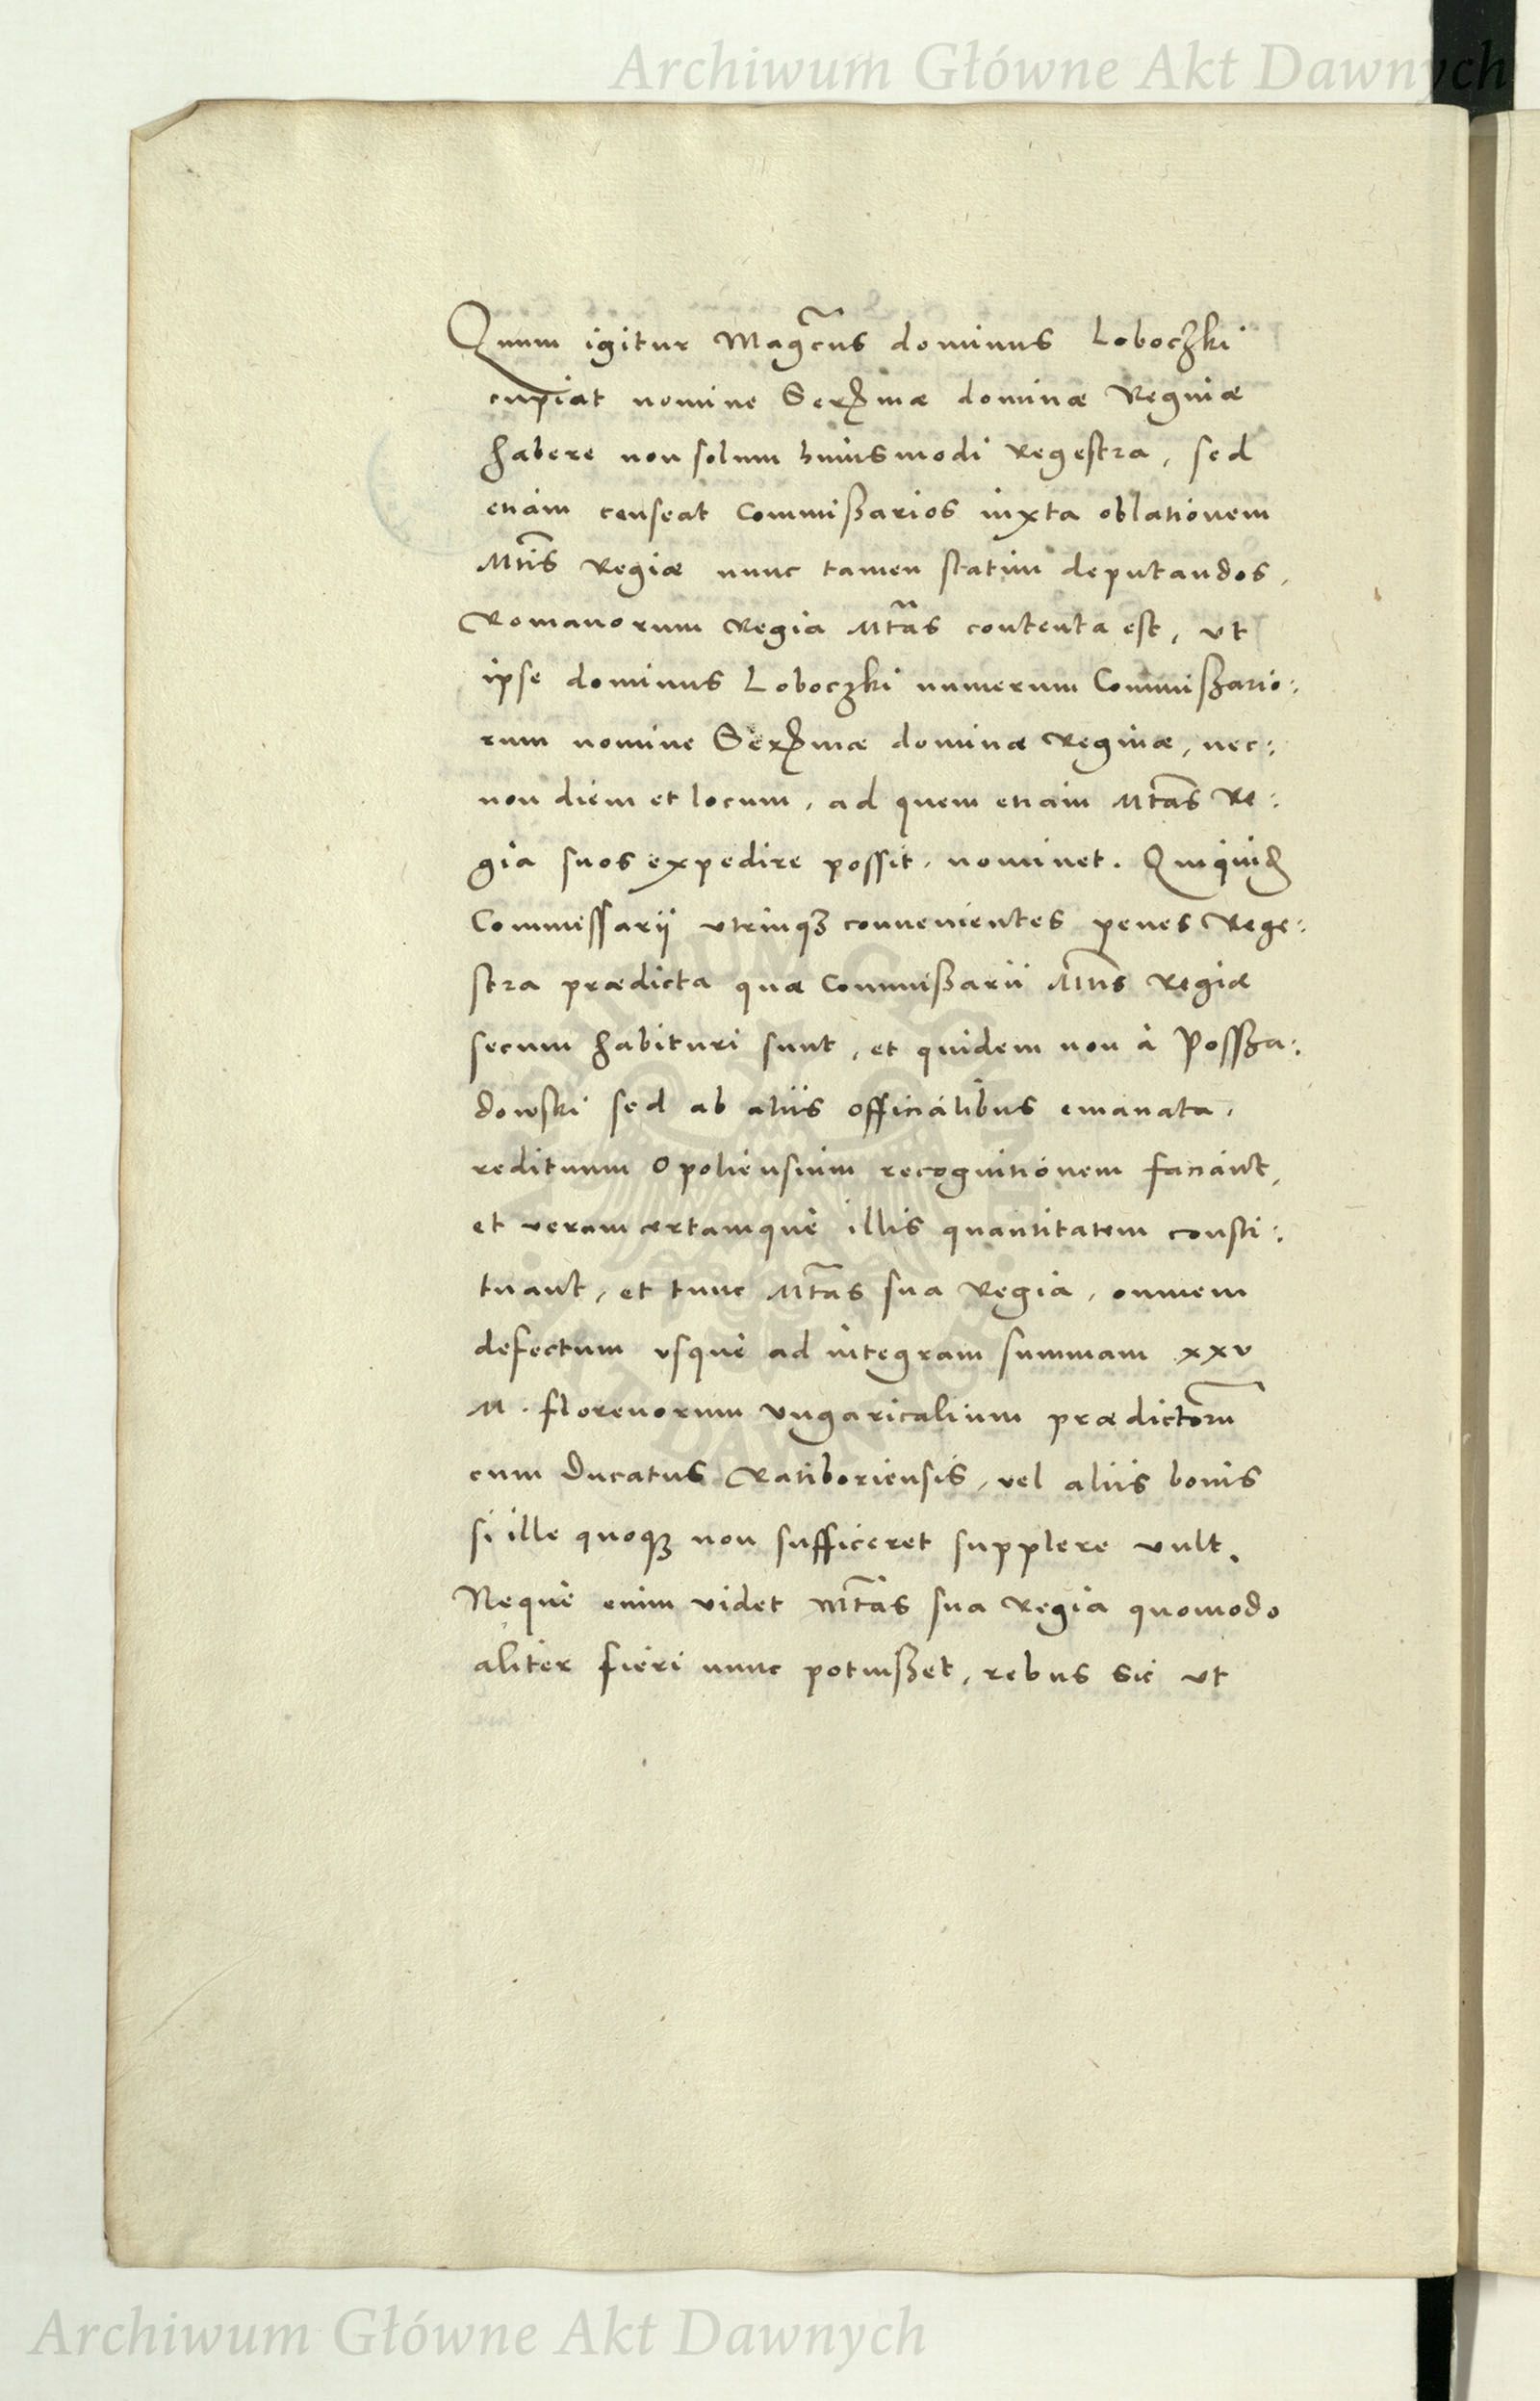 Archiwum Główne Akt Dawnych
Quum igitur Mag.cus dominus Loboczki
cupiat nomine Ser.mæ dominæ Reginæ
habere non solum huiusmodi regestra, sed
etiam censeat Commißarios iuxta oblationem
Mtis Regiæ nunc tamen statim deputandos,
Romanorum Regia Mtas contenta est, ut
ipse dominus Loboczki numerum Commißario:
rum nomine Ser.mæ dominæ Reginæ, nec:
non diem et locum, ad quem etiam Mtas Re:
gia suos expedire possit, nominet. Quiquid
Commissarij utrinq3 convenientes penes Rege:
stra prædicta quæ Commißarii Mtis Regiæ
secum habituri sunt, et quidem non à Possza:
dowski sed ab aliis officialibus emanata,
redituum Opoliensium recognitionem faciant,
et veram certamque illis quantitatem consti:
tuant, et tunc Mtas sua Regia, omnem
defectum usque ad integram summam xxv
M. florenorum ungaricalium prædictorum
cum Ducatus Ratiboriensis, vel aliis bonis
si ille quoq3 non sufficeret supplere vult.
Neque enim videt Mtas sua Regia quomodo
aliter fieri nunc potuißet, rebus sic ut
Archiwum Główne Akt Dawnych